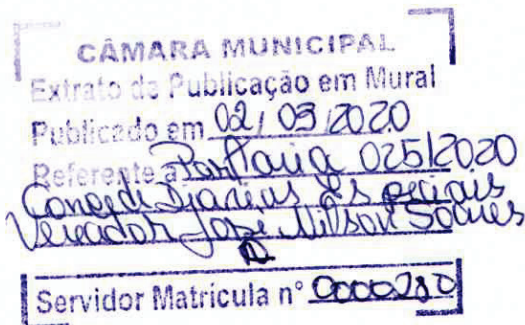 CÂMARA MUNICIPAL
Extrato da Publicação em Mural
Publicado em 02/03/2020
Referente a Portaria 025/2020
Concede Diarias Especiais
Vereador José Nilson Soares
Servidor Matricula nº